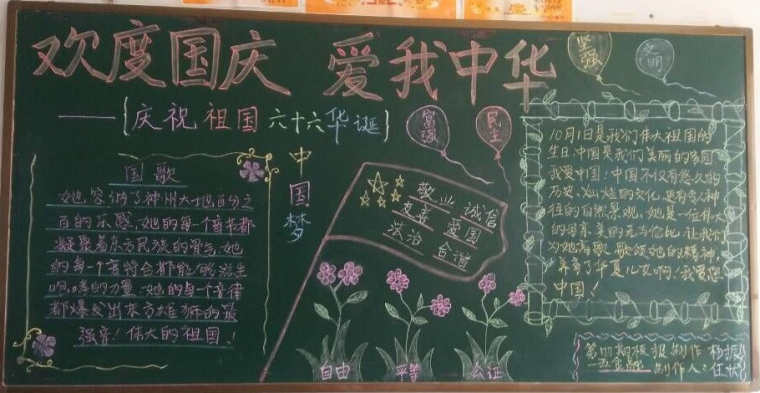 欢度国庆 爱我中华
——{庆祝祖国六十六华诞}
坚强
文明
富强
民主
中国梦
国歌
她容纳了神州大地百分之
百的乐感,她的每一个音节都
凝聚着东方民族的骨气,她
的每一个音符合都能够滋生
的力量,她的每一个音律
都爆发出东方雄狮的最
强音!伟大的祖国!
敬业 诚信
友善 爱国
法治 合谐
自由 平等 公证
10月1日是我们伟大祖国的
生日,中国是我们美丽的家园
我爱中国:中国不仅有悠久的
历史,灿烂的文化,更有令人神
往的自然景观,她是一位伟大
的母亲,美的无与伦比,让我们
为她高歌,歌颂她的精神,
养育了华夏儿女啊!我爱您
中国!
期板报制作
制作人: